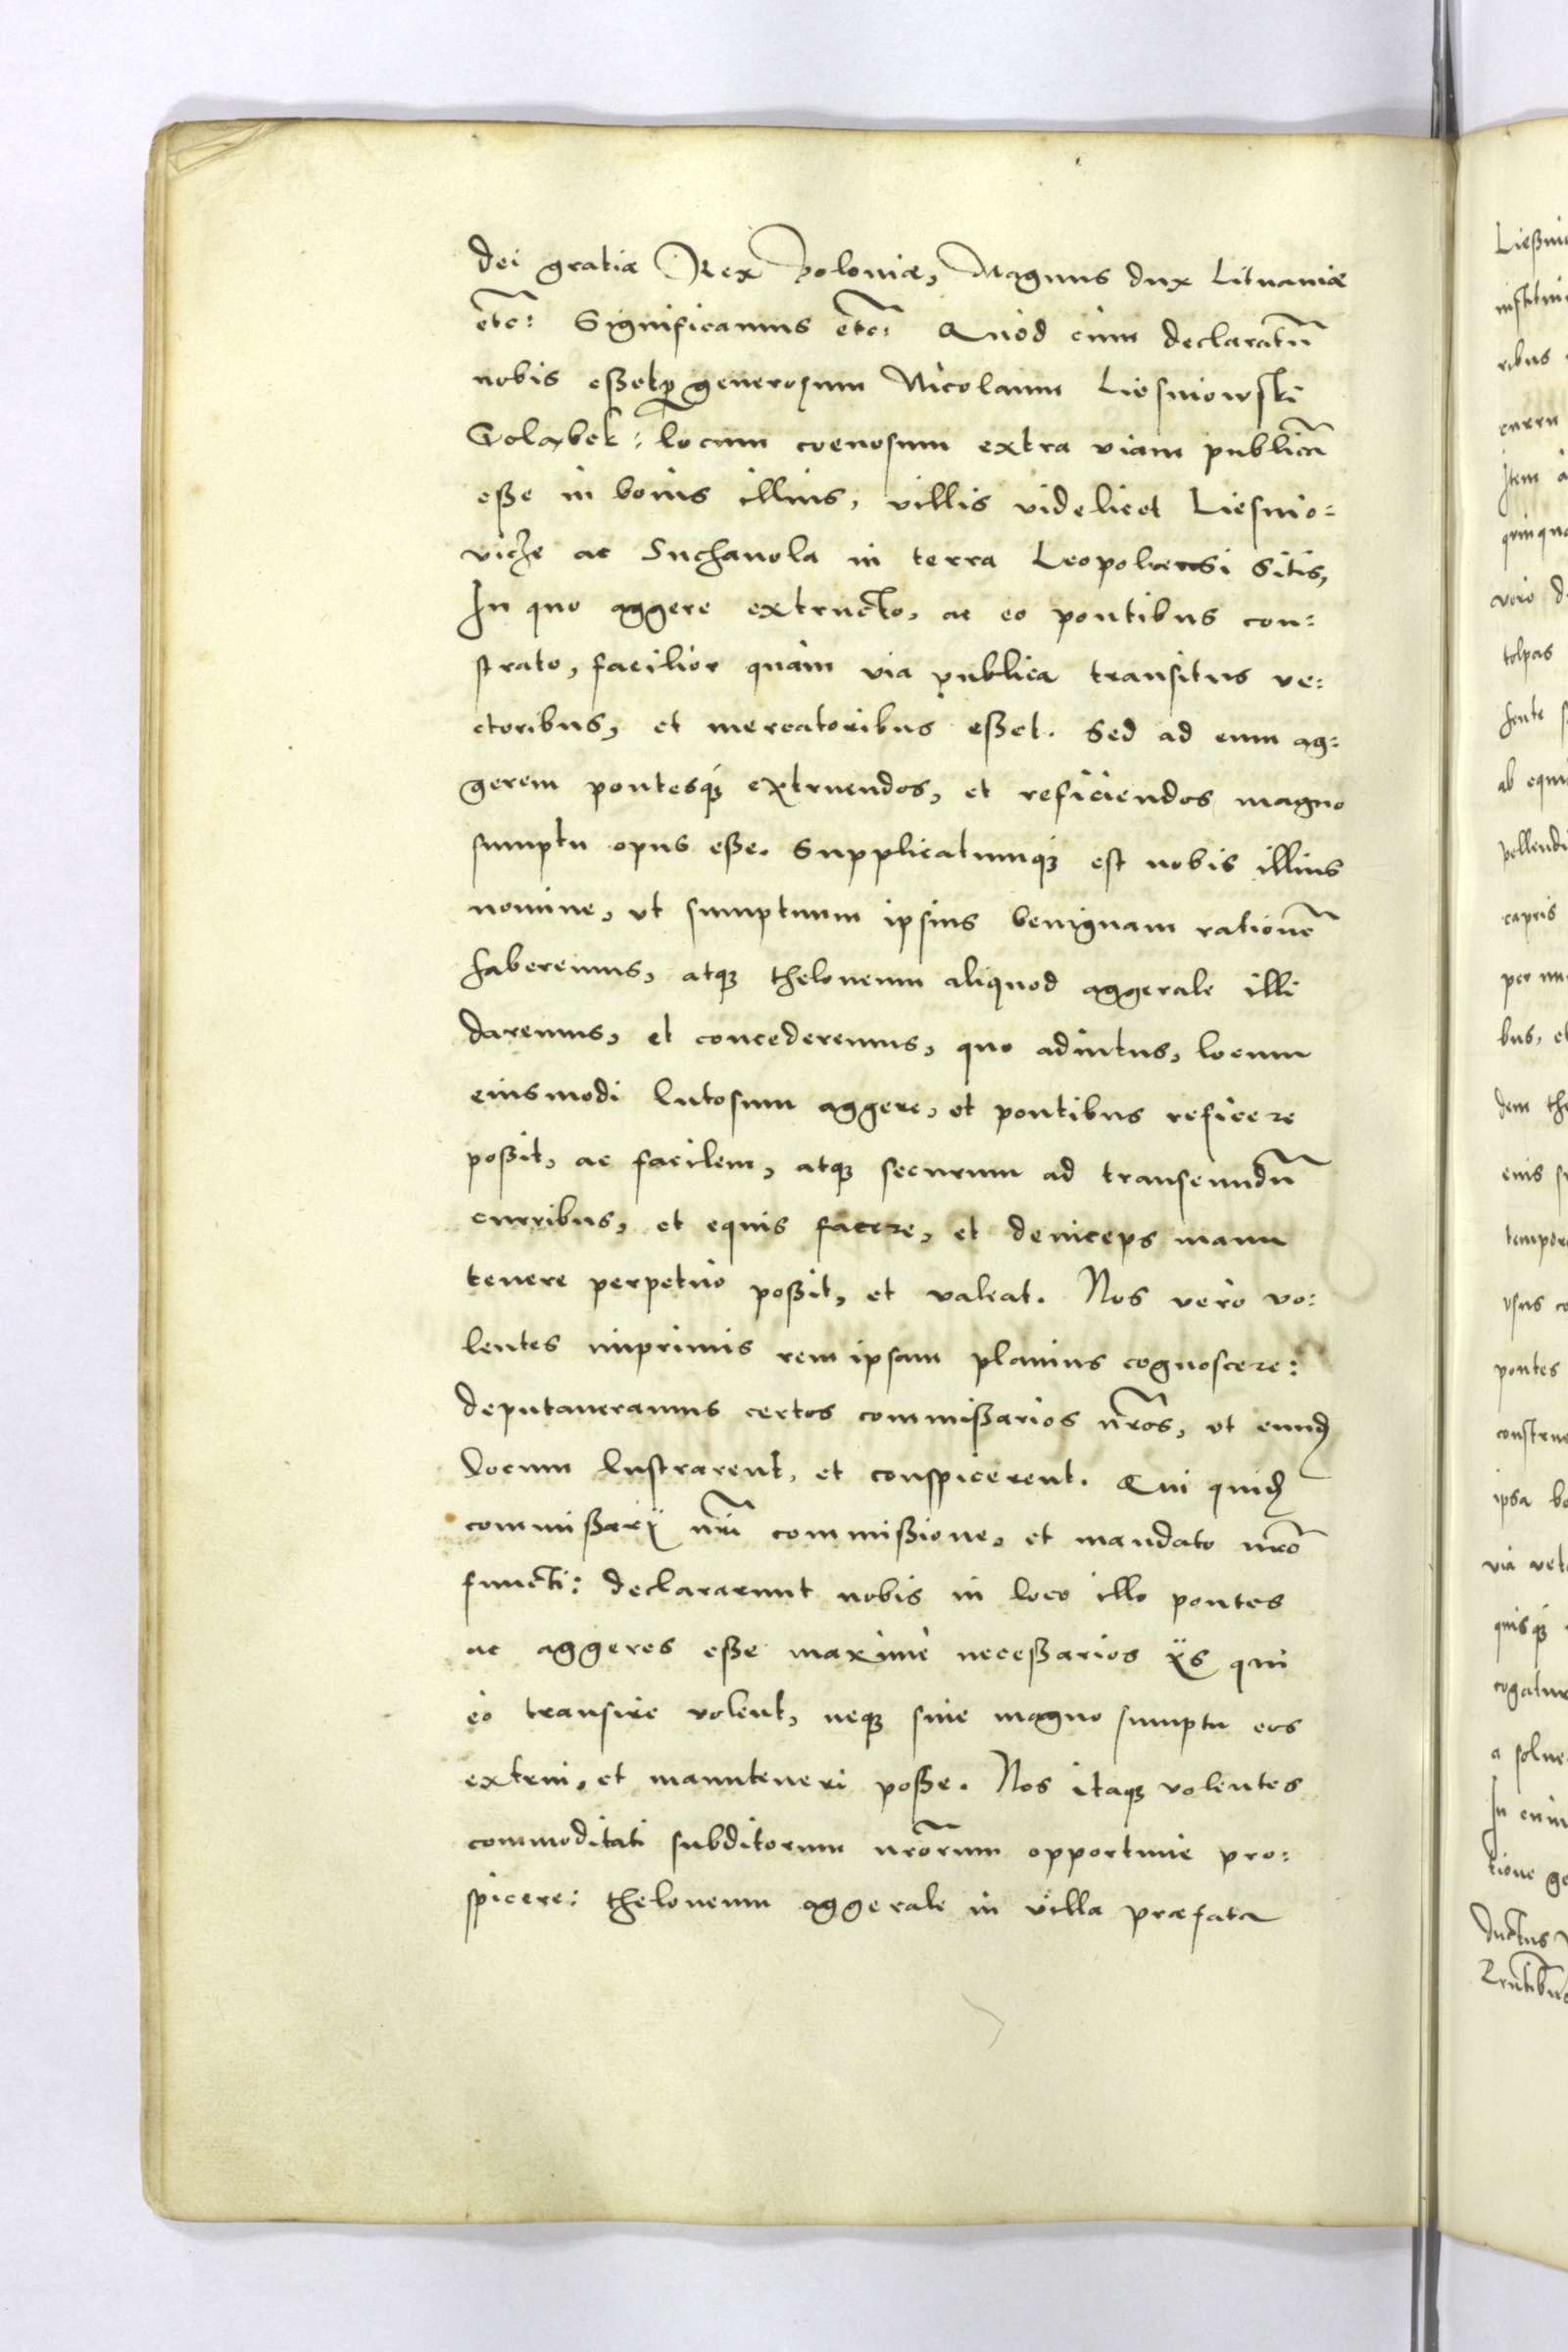 dei gratia Rex Poloniæ, Magnus dux Lituaniæ
etc: Significamus etc: Quòd cùm declaratū
nobis eßet ꝑ generosum Nicolaum Liesniowski
Goląbek: locum coenosum extra viam publicā
eße in bonis illius, villis videlicet Liesnio:
viche ac Suchavola in terra Leopoliensi sitis,
In quo aggere extructo, ac eo pontibus con:
strato, facilior quàm via publica transitus ve:
ctoribus, et mercatoribus eßet. Sed ad eum ag:
gerem pontesqȝ extruendos, et reficiendos magno
sumptu opus eße. Supplicatumqȝ est nobis illius
nomine, vt sumptuum ipsius benignam rationē
haberemus, atqȝ theloneum aliquod aggerale illi
daremus, et concederemus, quo adiutus, locum
eiusmodi lutosum aggere, et pontibus reficere
poßit, ac facilem, atqȝ securum ad transeundū
curribus, et equis facere, et deinceps manu
tenere perpetuò poßit, et valeat. Nos verò vo:
lentes inprimis rem ipsam planius cognoscere:
deputaueramus certos commißarios nr̄os, vt eundȝ
locum lustrarent, et conspicerent. Qui quidȝ
commißarij nr̄i commißione, et mandato nr̄o
functi: declararunt nobis in loco illo pontes
ac aggeres eße maximè neceßarios ijs qui
eò transire volent, neqȝ sine magno sumptu eos
extrui, et manuteneri poße. Nos itaqȝ volentes
commoditati subditorum nr̄orum opportunè pro:
spicere: theloneum aggerale in villa præfata
Ließni
ribus
curru
Item
tolpas
ab equi
capris
bus, et
dem
eius
tempore
vsus
pontes
ipsa
via
quisqȝ
cogatur
a solue
ductus